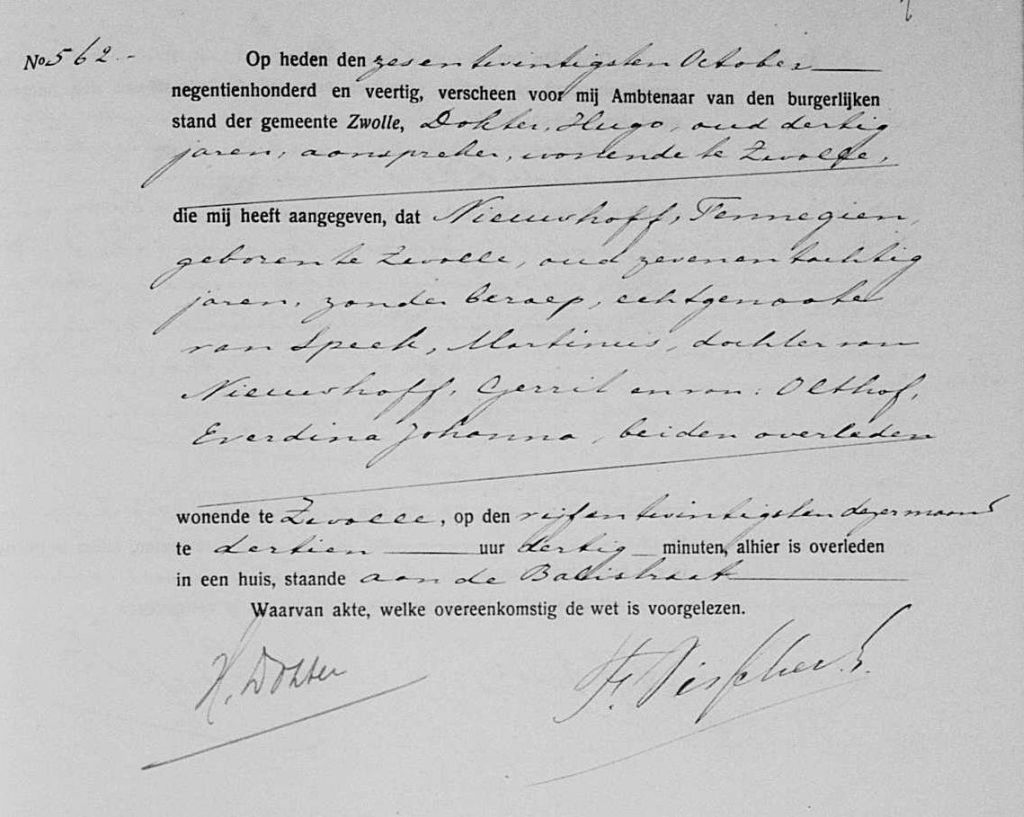 No 562.-
Op heden den zesentwintigsten October
negentienhonderd en veertig, verscheen voor mij Ambtenaar van den burgerlijken
stand der gemeente Zwolle, Dokter, Hugo, oud dertig
jaren, aanspreker, wonende te Zwolle,
die mij heeft aangegeven, dat Nieuwhoff, Fennegien,
geboren te Zwolle, oud zevenentachtig
jaren, zonder beroep, echtgenoote
van Speek, Martinus, dochter van
Nieuwhoff, Gerrit en van: Olthof,
Everdina Johanna, beiden overleden
wonende te Zwolle, op den vijfentwintigsten dezer maand
te dertien uur dertig minuten, alhier is overleden
in een huis, staande aan de Balistraat
Waarvan akte, welke overeenkomstig de wet is voorgelezen.
H. Dokter